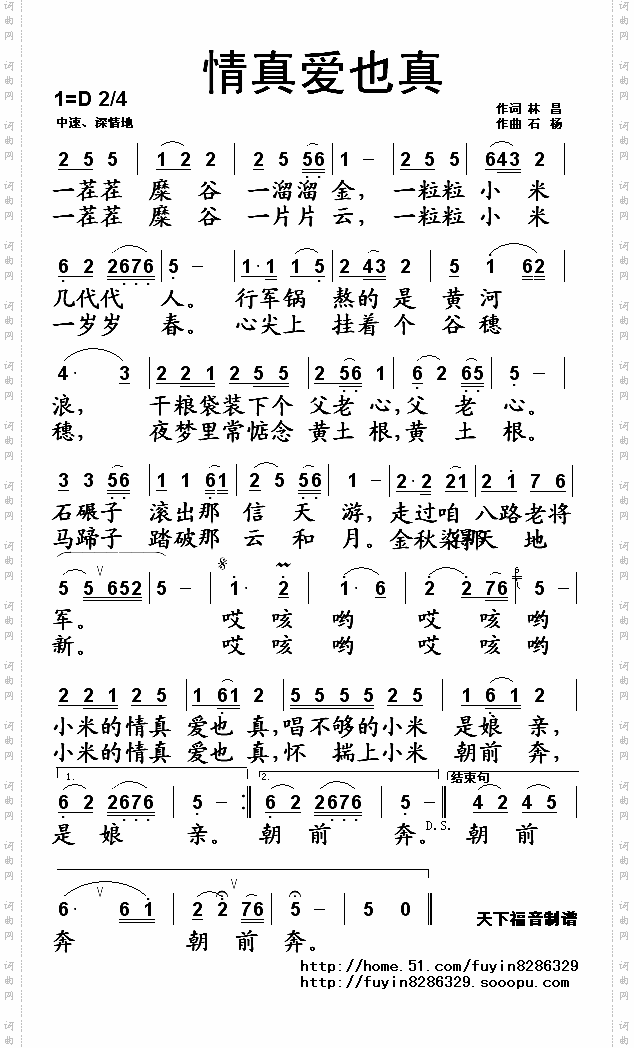 情真爱也真
1=D 2/4
中速、深情地
作词 林 昌
作曲 石 杨
2 5 5 | 1 2 2 | 2 5 56 | 1 - | 2 5 5 | 643 2 |
一茬茬 糜 谷 一溜溜 金, 一粒粒 小 米
一茬茬 糜 谷 一片片 云, 一粒粒 小 米
6 2 2676 | 5 - | 1· 1 1 5 | 2 43 2 | 5 1 62 |
几代代 人。 行军锅 熬的 是 黄 河
一岁岁 春。 心尖上 挂着 个 谷 穗
4· 3 | 2 2 1 2 5 5 | 2 56 1 | 6 2 65 | 5 - |
浪, 干粮袋装下个 父老 心,父 老 心。
穗, 夜梦里常惦念 黄土 根,黄 土 根。
3 3 56 | 1 1 61 | 2 5 56 | 1 - | 2· 2 21 | 2 1 7 6 |
石碾子 滚出那 信 天 游,走过咱 八路老将
马蹄子 踏破那 云 和 月。金秋染得那天 地
5 5 652 | 5 - | 1· 2 | 1· 6 | 2 2 76 | 5 - |
军。 哎 咳 哟 哎 咳 哟
新。 哎 咳 哟 哎 咳 哟
2 2 1 2 5 | 1 61 2 | 5 5 5 5 2 5 | 1 6 1 2 |
小米的情真 爱也 真,唱不够的小米 是娘 亲,
小米的情真 爱也 真,怀 揣上小米 朝前 奔,
1. 2. 结束句
6 2 2676 | 5 - :‖ 6 2 2676 | 5 - ‖ 4 2 4 5 |
D.S.
是 娘 亲。 朝 前 奔。 朝 前
6· 6 1 | 2 2 76 | 5 - | 5 0 ‖
奔 朝 前 奔。
天下福音制谱
http://home.51.com/fuyin8286329
http://fuyin8286329.sooopu.com
词曲网